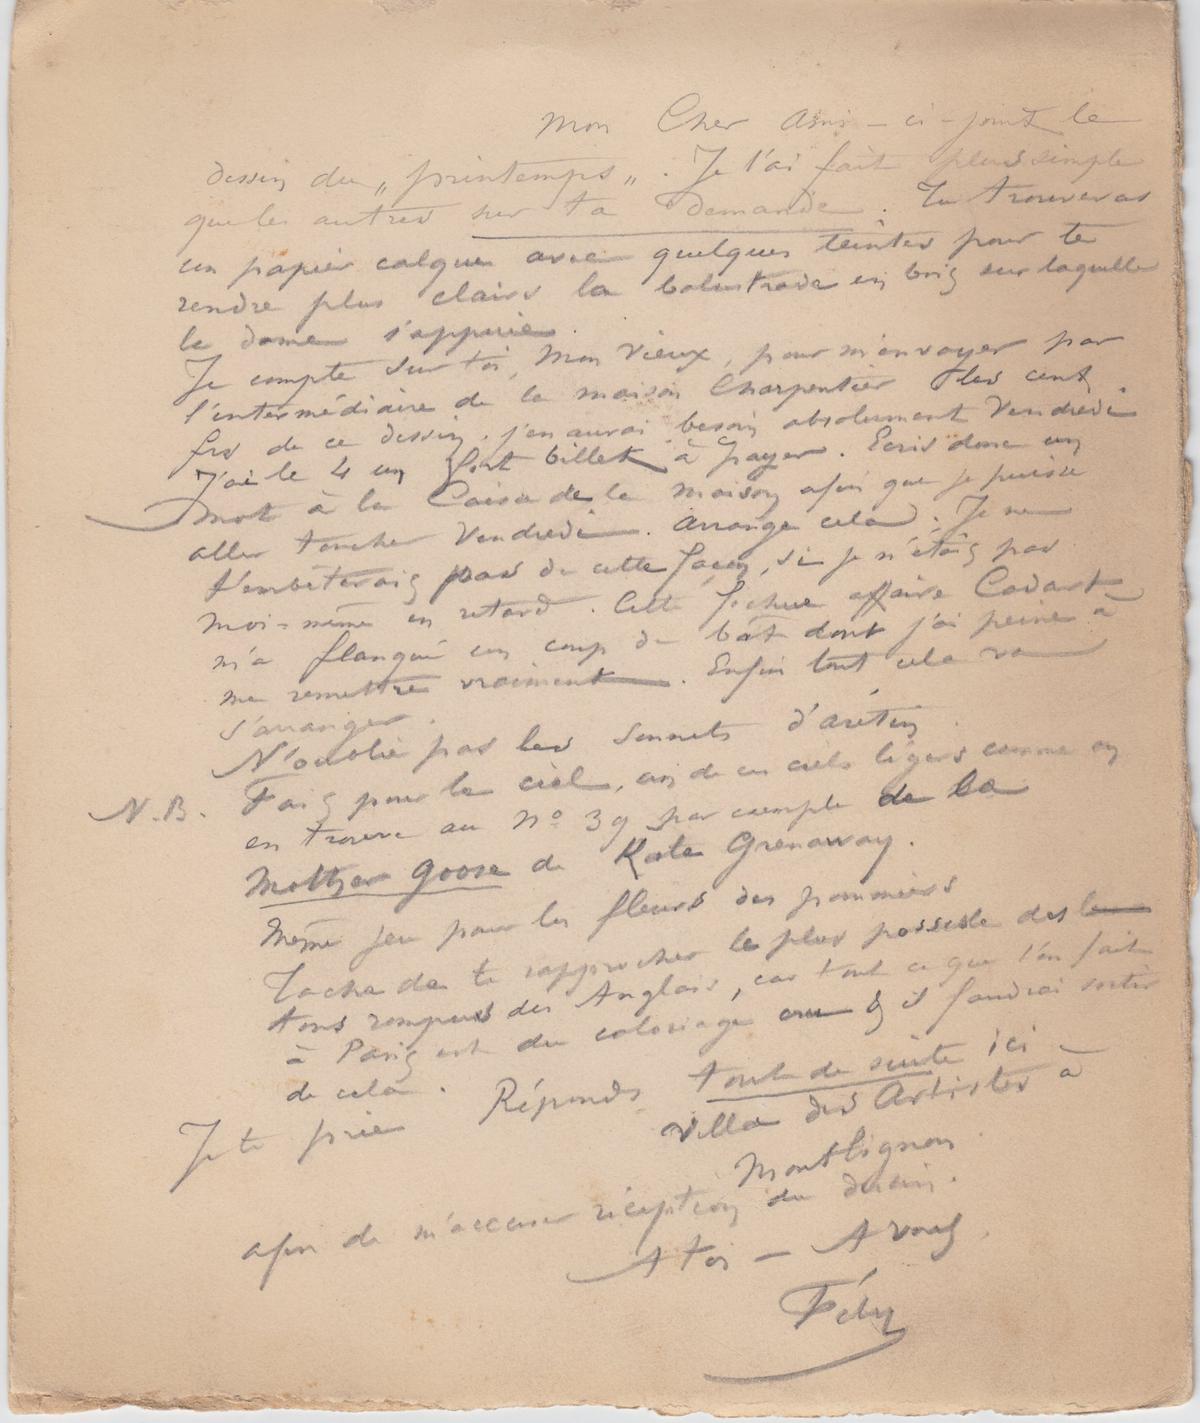 Mon Cher Ami – ci-joint le
dessin du „printemps„. Je l'ai fait plus simple
que les autres sur ta demande. Tu trouveras
un papier calque avec quelques teintes pour te
rendre plus clairs la balustrade en bois sur laquelle
la dame s'appuie.
Je compte sur toi, mon vieux, pour m'envoyer par
l'intermédiaire de la maison Charpentier les cent
frs de ce dessin. j'en aurai besoin absolument Vendredi.
J'ai le 4 un fort billet à payer. Ecris donc un
mot à la Caisse de la maison afin que je puisse
aller toucher Vendredi. Arrange cela. Je ne
t'embêterais pas de cette façon, si je n'étais pas
moi-même en retard. Cette fichue affaire Cadart
m'a flanqué un coup de bât dont j'ai peine à
me remettre vraiment. Enfin tout cela va
s'arranger.
N'oublie pas les Sonnets d'arétin.
N.B. Fais pour le ciel, un de ces ciels légers comme on
en trouve au Nº 39 par exemple de la
Mother Goose de Kate Grenaway.
Même jeu pour les fleurs des pommiers
Tache de te rapprocher le plus possible des
tons rompus des Anglais, car tout ce que l'on fait
à Paris est du coloriage cru & il faudrai sortir
de cela.
Je te prie Réponds tout de suite ici
Villa des Artistes à
Montlignon
afin de m'accuser réception du dessin.
A toi – A vous
Fély